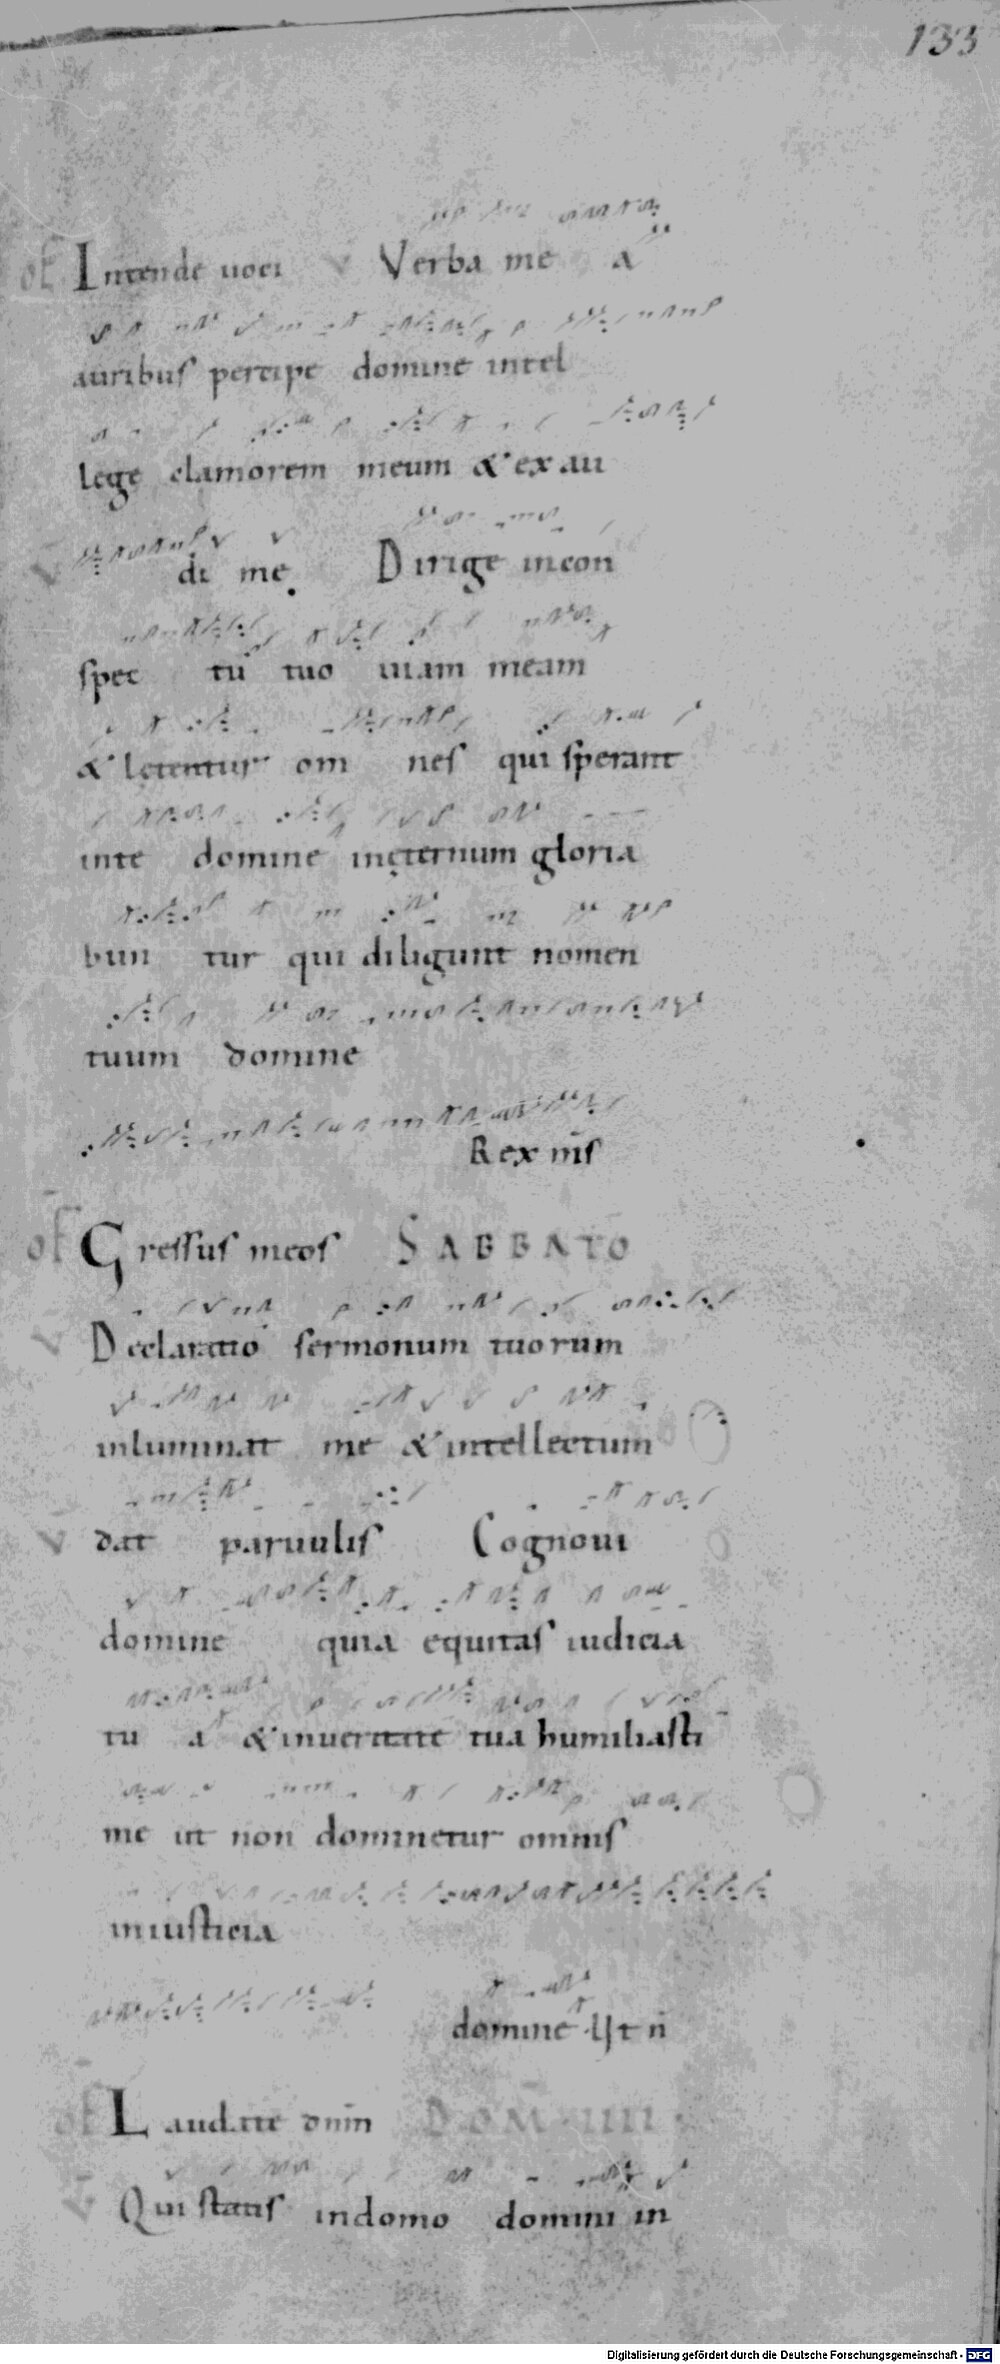 133
of Intende uoci V Verba me a
auribus percipe domine intel
lege clamorem meum & exau
V di me. Dirige incon
spec tu tuo uiam meam
& letentur om nes qui sperant
inte domine inęternum gloria
bun tur qui diligunt nomen
tuum domine
Rex m̄s
of Gressus meos SABBATO
V Declaratio sermonum tuorum
inluminat me & intellectum
V dat paruulis Cognoui
domine quia equitas iudicia
tu a & inueritate tua humiliasti
me ut non dominetur omnis
iniusticia
domine Ut n̄
of Laudate dnm̄ DOM IIII
V Qui statis indomo domini in
Digitalisierung gefördert durch die Deutsche Forschungsgemeinschaft - DFG